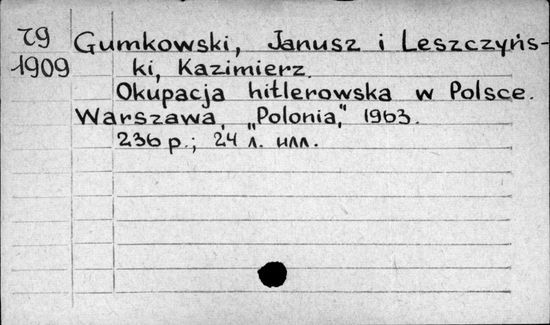 79
1909
Gumkowski, Janusz i Leszczyńs-
ki, Kazimierz.
Okupacja hitlerowska w Polsce.
Warszawa, „Polonia", 1963.
236 p.; 24 л. илл.